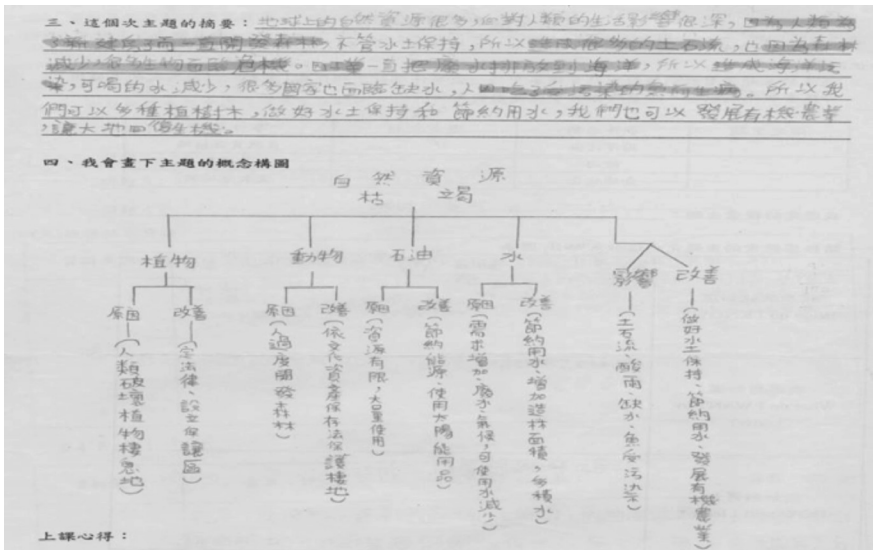 三、這個次主題的摘要：地球上的自然資源很多，但對人類的生活影響很深，因為人類為
了新建房子而一直開發森林，不管水土保持，所以造成很多的土石流，也因為森林
減少，很多生物面臨危機。一直把廢水排放到海洋，所以造成海洋污
染，可喝的水減少，很多國家也面臨缺水，所以我
們可以多種植樹木，做好水土保持和節約用水，我們也可以發展有機農業
，讓大地回復生機。
四、我會畫下主題的概念構圖
自然資源
枯竭
植物 動物 石油 水 影響 改善
原因 改善 原因 改善 原因 改善 原因 改善
（人類破壞植物棲息地）
（定法律、設立保護區）
（人過度開發森林）
（依文化資產保存法保護棲地）
（資源有限，大量使用）
（節約能源、使用太陽能用品）
（需求增加、廢水、氣候，可使用水減少）
（節約用水、增加造林面積，多積水）
（土石流、酸雨、缺水、魚受污染）
（做好水土保持、節約用水、發展有機農業）
上課心得：